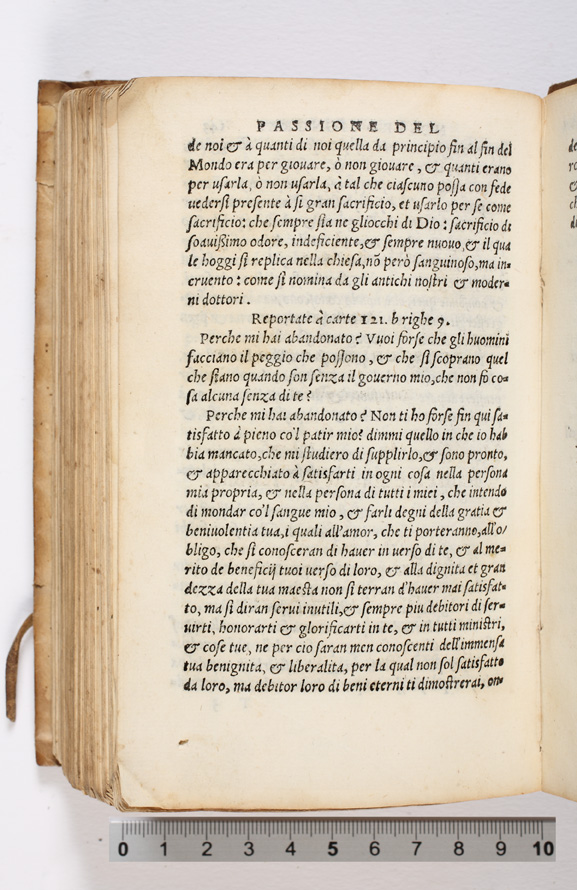 PASSIONE DEL
de noi & à quanti di noi quella da principio fin al fin del
Mondo era per giovare, ò non giovare, & quanti erano
per usarla, ò non usarla, à tal che ciascuno possa con fede
uedersi presente à si gran sacrificio, et usarlo per se come
sacrificio: che sempre sta ne gliocchi di Dio: sacrificio di
soauißimo odore, indeficiente, & sempre nuouo, & il qua
le hoggi si replica nella chiesa, nõ però sanguinoso, ma in=
cruento: come si nomina da gli antichi nostri & moder=
ni dottori.
Reportate à carte 121. b righe 9.
Perche mi hai abandonato? Vuoi forse che gli huomini
facciano il peggio che possono, & che si scoprano quel
che siano quando son senza il governo mio, che non fò co=
sa alcuna senza di te?
Perche mi hai abandonato? Non ti ho forse fin qui sa=
tisfatto à pieno co'l patir mio? dimmi quello in che io hab
bia mancato, che mi studiero di supplirlo, & sono pronto,
& apparecchiato à satisfarti in ogni cosa nella persona
mia propria, & nella persona di tutti i miei, che intendo
di mondar co'l sangue mio, & farli degni della gratia &
beniuolentia tua, i quali all'amor, che ti porteranno, all'o/
bligo, che si conosceran di hauer in uerso di te, & al me=
rito de beneficij tuoi uerso di loro, & alla dignita et gran
dezza della tua maesta non si terran d'hauer mai satisfat=
to, ma si diran serui inutili, & sempre piu debitori di ser=
uirti, honorarti & glorificarti in te, & in tutti ministri,
& cose tue, ne per cio saran men conoscenti dell'immensa
tua benignita, & liberalita, per la qual non sol satisfatto
da loro, ma debitor loro di beni eterni ti dimostrerai, on=
0 1 2 3 4 5 6 7 8 9 10